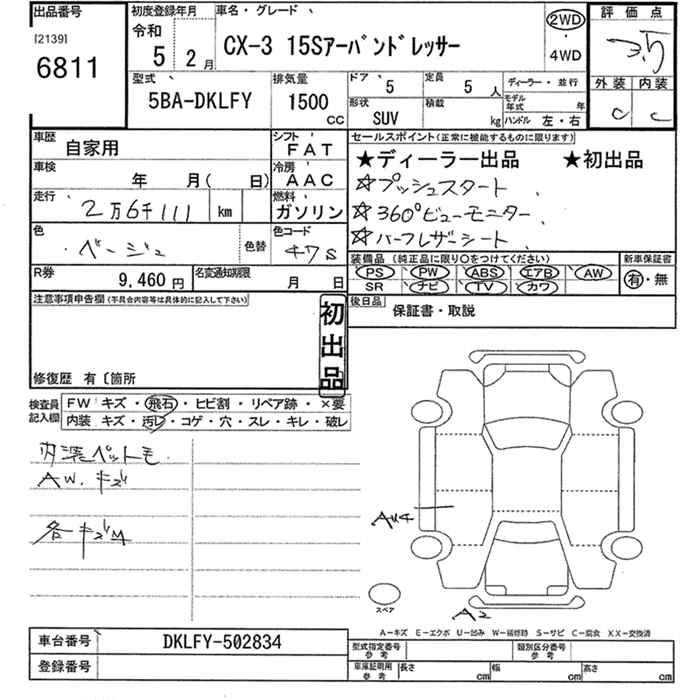 出品番号
[2139]
6811
初度登録年月
令和
5 2月
車名・グレード
CX-3 15Sアーバンドレッサー
2WD
・
4WD
評価点
3.5
外装 内装
C C
型式
5BA-DKLFY
排気量
1500
CC
ドア
5
定員
5 人
ディーラー・並行
形状
SUV
積載
kg
モデル年式
年
ハンドル 左・右
車歴
自家用
シフト
FAT
車検
年 月( 日)
冷房
AAC
走行
2万6千111 km
燃料
ガソリン
色
ベージュ
色替
色コード
47S
R券
9,460円
名変通知期限
月 日
セールスポイント(正常に機能するものに限ります)
★ディーラー出品 ★初出品
☆プッシュスタート
☆360°ビューモニター
☆ハーフレザーシート
装備品 (純正品に限り〇をつけてください)
新車保証書
PS PW ABS エアB AW
SR ナビ TV カワ
有・無
注意事項申告欄(不具合内容等は具体的に記入して下さい)
初出品
後日品
保証書・取説
修復歴 有〔箇所
検査員記入欄
FW キズ・飛石・ヒビ割・リペア跡・×要
内装 キズ・汚レ・コゲ・穴・スレ・キレ・破レ
内装ペットモ
AW. キズ
各キズM
AU4
スペア
A2
A−キズ E−エクボ U−凹み W−補修跡 S−サビ C−腐食 XX−交換済
車台番号
DKLFY-502834
登録番号
型式指定番号
参考
類別区分番号
参考
車庫証明用
参考
長さ cm
幅 cm
高さ cm